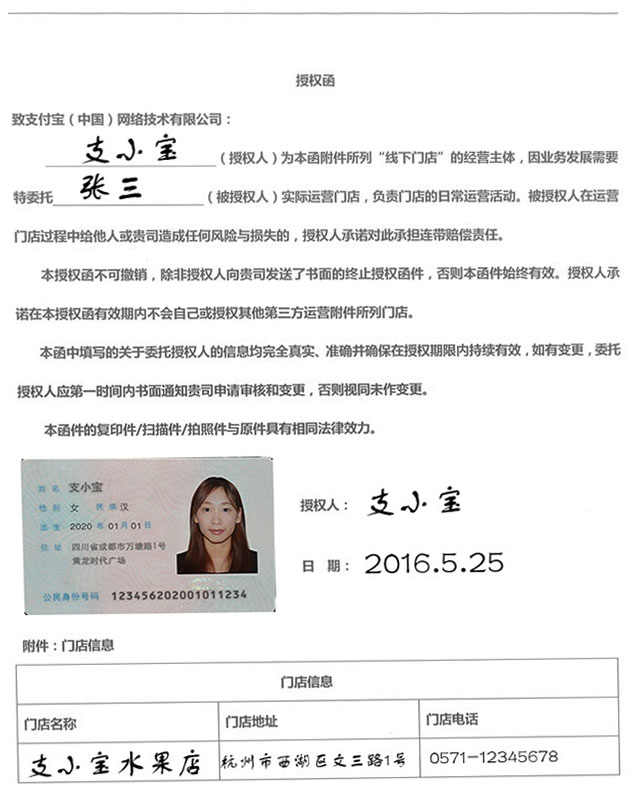 授权函
致支付宝（中国）网络技术有限公司：
支小宝（授权人）为本函附件所列“线下门店”的经营主体，因业务发展需要
特委托张三（被授权人）实际运营门店，负责门店的日常运营活动。被授权人在运营
门店过程中给他人或贵司造成任何风险与损失的，授权人承诺对此承担连带赔偿责任。
本授权函不可撤销，除非授权人向贵司发送了书面的终止授权函件，否则本函件始终有效。授权人承
诺在本授权函有效期内不会自己或授权其他第三方运营附件所列门店。
本函中填写的关于委托授权人的信息均完全真实、准确并确保在授权期限内持续有效，如有变更，委托
授权人应第一时间内书面通知贵司申请审核和变更，否则视同未作变更。
本函件的复印件/扫描件/拍照件与原件具有相同法律效力。
姓名 支小宝
性别 女 民族 汉
出生 2020 年 01 月 01 日
住址 四川省成都市万塘路1号
黄龙时代广场
公民身份号码 123456202001011234
授权人： 支小宝
日 期： 2016.5.25
附件：门店信息
门店信息
门店名称 门店地址 门店电话
支小宝水果店 杭州市西湖区文三路1号 0571-12345678